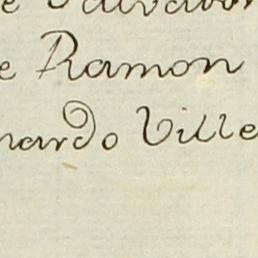 e Salvador
e Ramon
nardo Ville